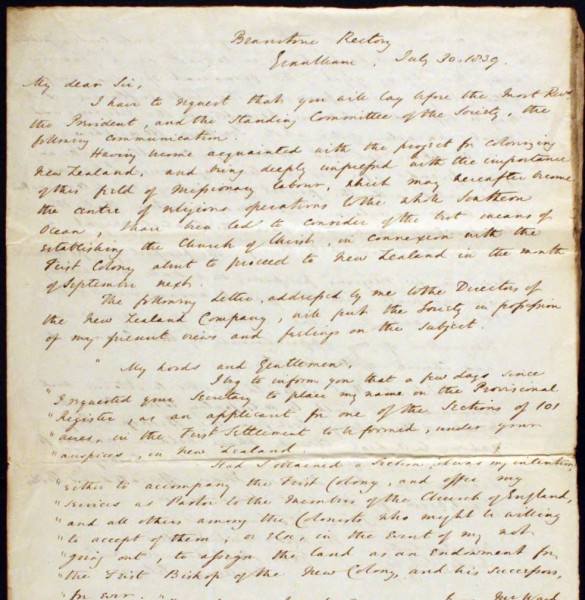 Branstone Rectory
Grantham, July 30. 1839.
My dear Sir,
I have to request that you will lay before the Most Revd
the President, and the Standing Committee of the Society, the
following communication.
Having become acquainted with the project for colonizing
New Zealand, and being deeply impressed with the importance
of this field of Missionary labour, which may hereafter become
the centre of religious operations to the whole Southern
Ocean, I have been led to consider of the best means of
establishing the Church of Christ, in connexion with the
First Colony about to proceed to New Zealand in the month
of September next.
The following Letter, addressed by me to the Directors of
the New Zealand Company, will put the Society in possession
of my present views and feelings on the subject.
" My Lords and Gentlemen,
I beg to inform you that a few days since
" I requested your Secretary to place my name on the Provisional
" Register, as an applicant for one of the Sections of 101
" acres, in the First Settlement to be formed, under your
" auspices, in New Zealand.
Had I obtained a Section, it was my intention,
" either to accompany the First Colony, and offer my
" services as Pastor to the Members of the Church of England,
" and all others among the Colonists who might be willing
" to accept of them; or else, in the event of my not
" going out, to assign the land as an Endowment for
" the First Bishop of the New Colony, and his Successors,
" for ever. Mr Ward